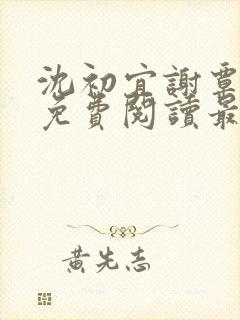 沈初宜謝票
免費閱讀最
黃先志